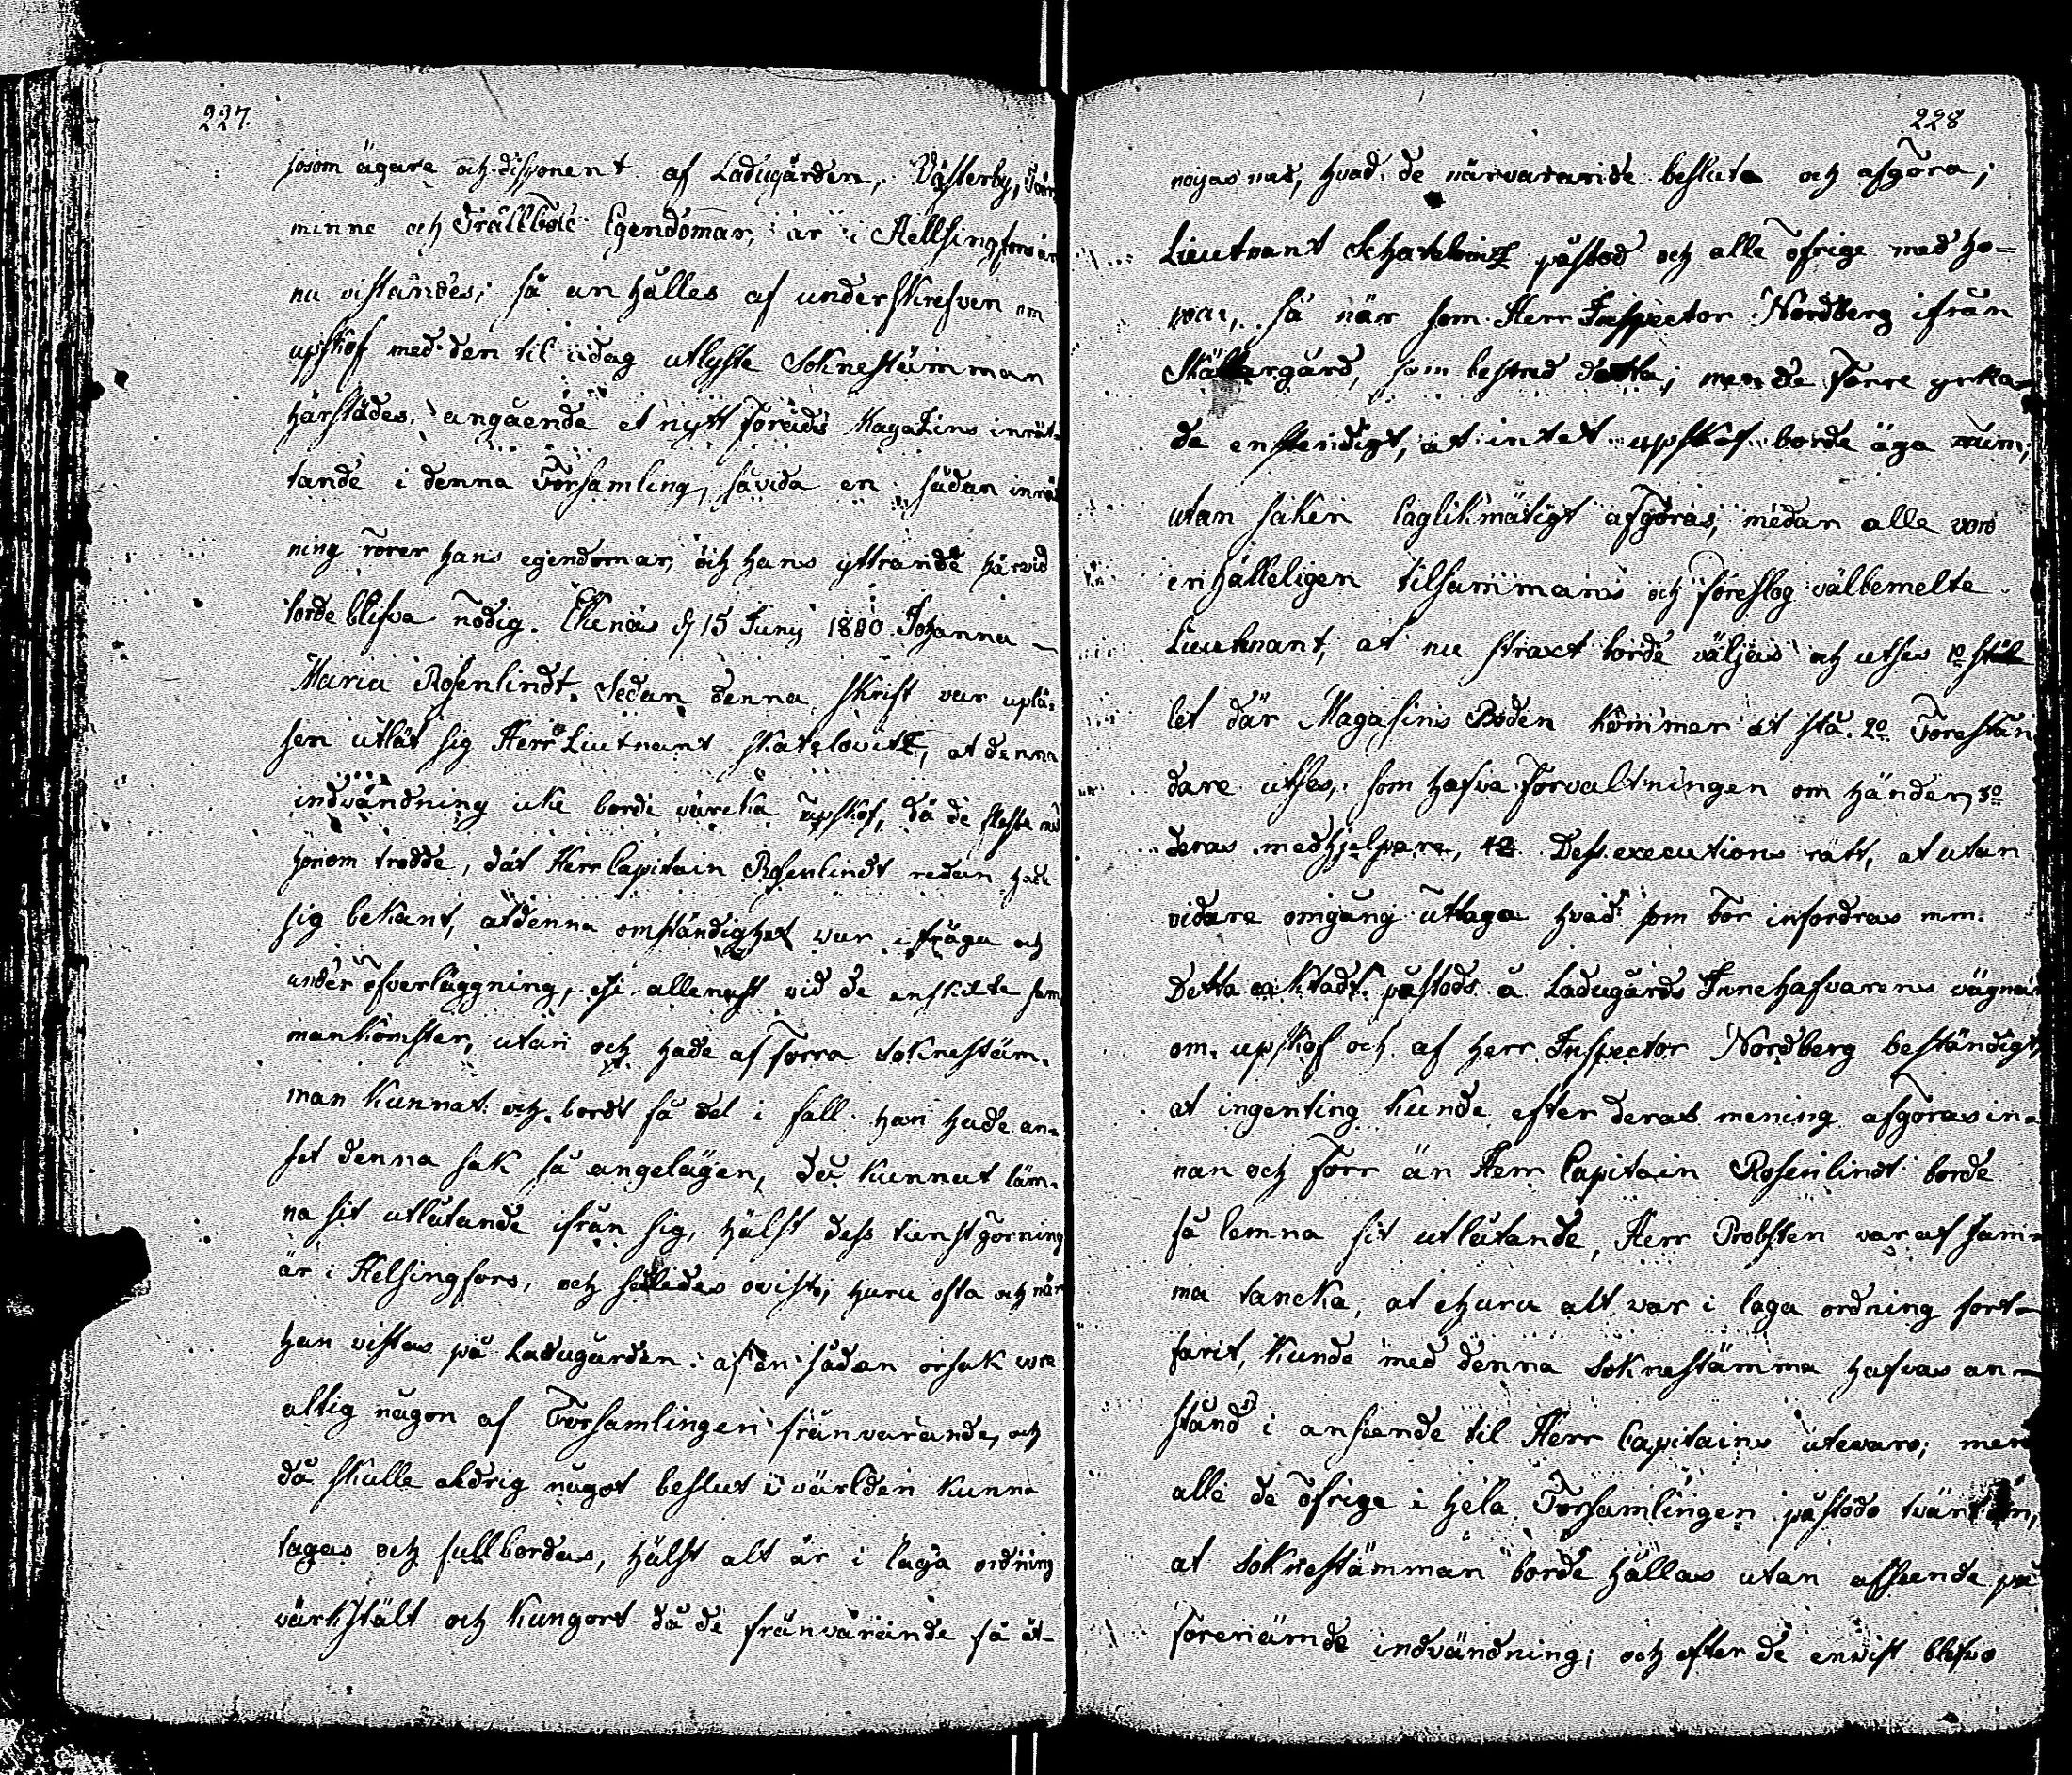 227.
såsom ägare och disponent af Ladugården, Västerby, Tvär
minne och Trällbole Egendomar, är i Hellsingfors än
nu vistandes; så anhålles af underskrefven om
upskof med den til idag utlyste Soknestämman
härstädes, angående et nytt Förråds Magazins inrät-
tande i denna Församling, såvida en sådan inrät
ning rörer hans egendomar, och hans yttrande härvid
torde blifva nödig. Ekenäs d 15 Junij 1800. Johanna
Maria Rosenlindt. Sedan denna skrift var uplä-
sen utlät sig Herr Liutnant Skatelovitz, at denna
indvändning icke borde värcka upskof, då de fleste med
honom trodde, dät Herr Capitain Rosenlindt redan hade
sig bekant, at denna omständighet var i fråga och
under öfverläggning, ej allenast vid de enskilte sam
mankomster, utan och hade af förra soknestäm-
man kunnat och bordt få del i fall han hade an-
set denna sak så angelägen, då kunnat läm-
na sit utlåtande ifrån sig, hälst dess tienstgörning
är i Helsingfors, och således ovist, huru ofta och när
han vistas på Ladugården. af en sådan orsak vore
altig någon af Församlingen frånvarande, och
då skulle aldrig något beslut i världen kunna
tagas och fullbordas, hälst alt är i laga ordning
värkstält och kungort då de frånvarande få åt-
228
nöjas med, hvad de närvarande besluta och afgöra;
Lieutnant Schatelowitz påstod och alle öfrige med ho-
nom, så när som Herr Inspector Nordberg ifrån
Skållargård, som bestred detta; men de förre yrka-
de enständigt, at intet upskof borde äga rum,
utan saken laglikmätigt afgöras, medan alle voro
enhälleligen tilsammans och föreslog välbemelte
Lieutnant, at nu straxt borde väljas och utses 1o stäl
let där Magasins Boden kommer at stå. 2o Förestån
dare utses, som hafva förvaltningen om händer, 3o
deras medhjelpare, 4o Dess executions rätt, at utan
vidare omgång uttaga hvad som bör infordras m.m.
Detta oaktadt påstods å Ladugårds Innehafvarens vägnar
om upskof och af Herr Inspector Nordberg beständigt,
at ingenting kunde efter deras mening afgöras in-
nan och förr än Herr Capitain Rosenlindt borde
få lemna sit utlåtande, Herr Probsten var af sam-
ma tancka, at ehuru alt var i laga ordning fort-
farit, kunde med denna soknestämma hafvas an-
stånd i anseende til Herr Capitains utevaro; men
alle de öfrige i hela Församlingen påstodo tvärtom,
at soknestämman borde hållas utan afseende på
förenämde indvändning; och efter de envist blefvo